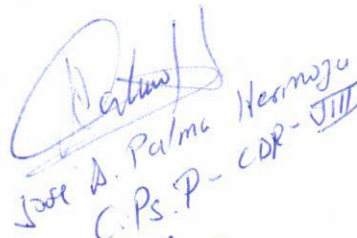 José A. Palma Hermoza
C.Ps.P - CDR - VIII